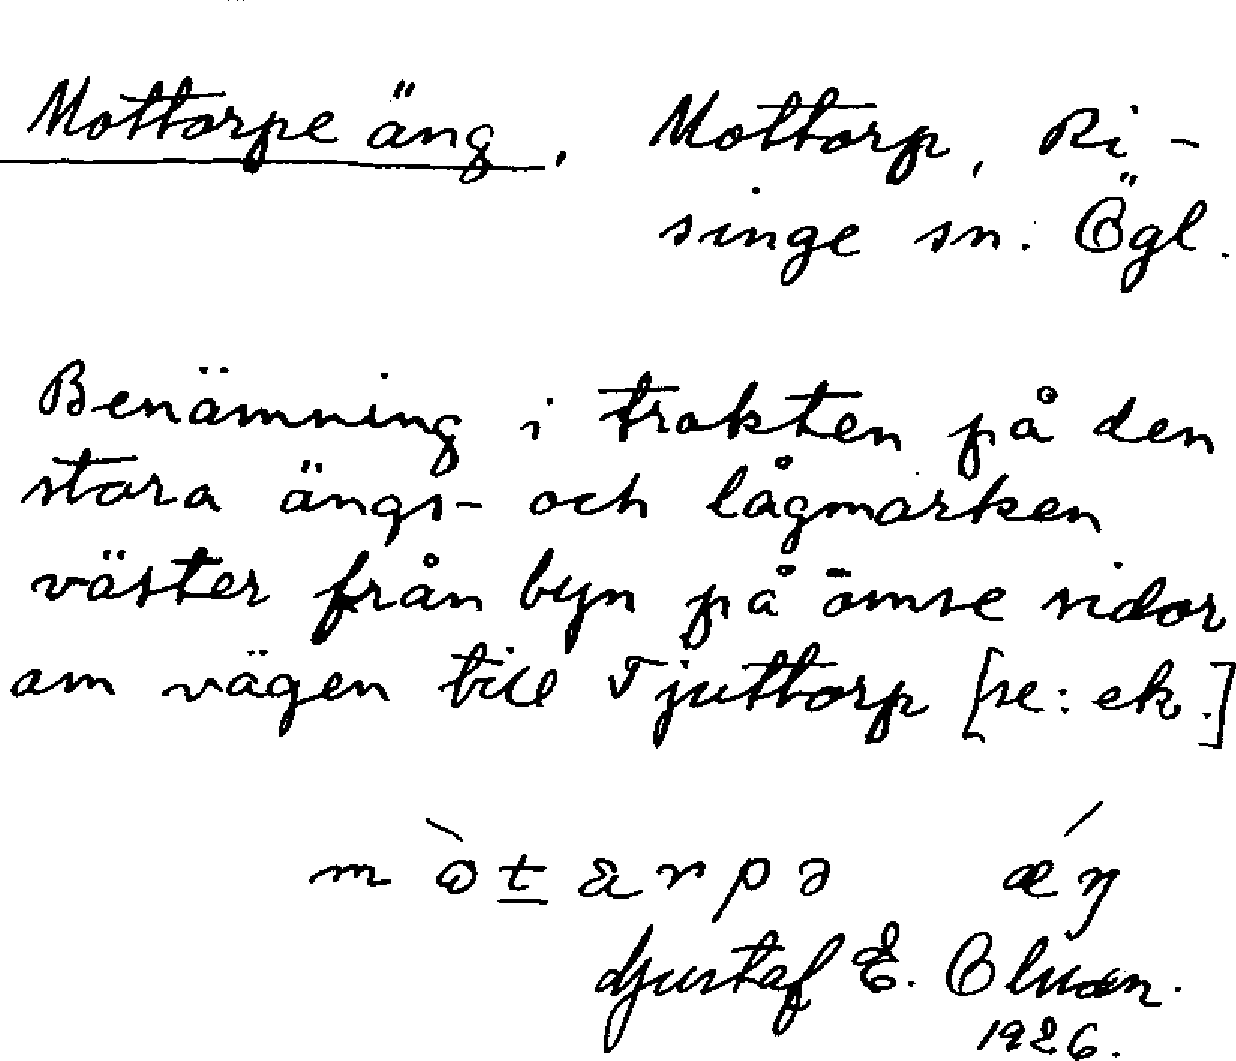 Mottorpe äng, Mottorp, Ri-
singe sn. Ögl.
Benämning i trakten på den
stora ängs- och lågmarken
väster från byn på ömse sidor
om vägen till Tjuttorp [se: ek.]
æ´ŋ
Gustaf E. Olsson.
1926.